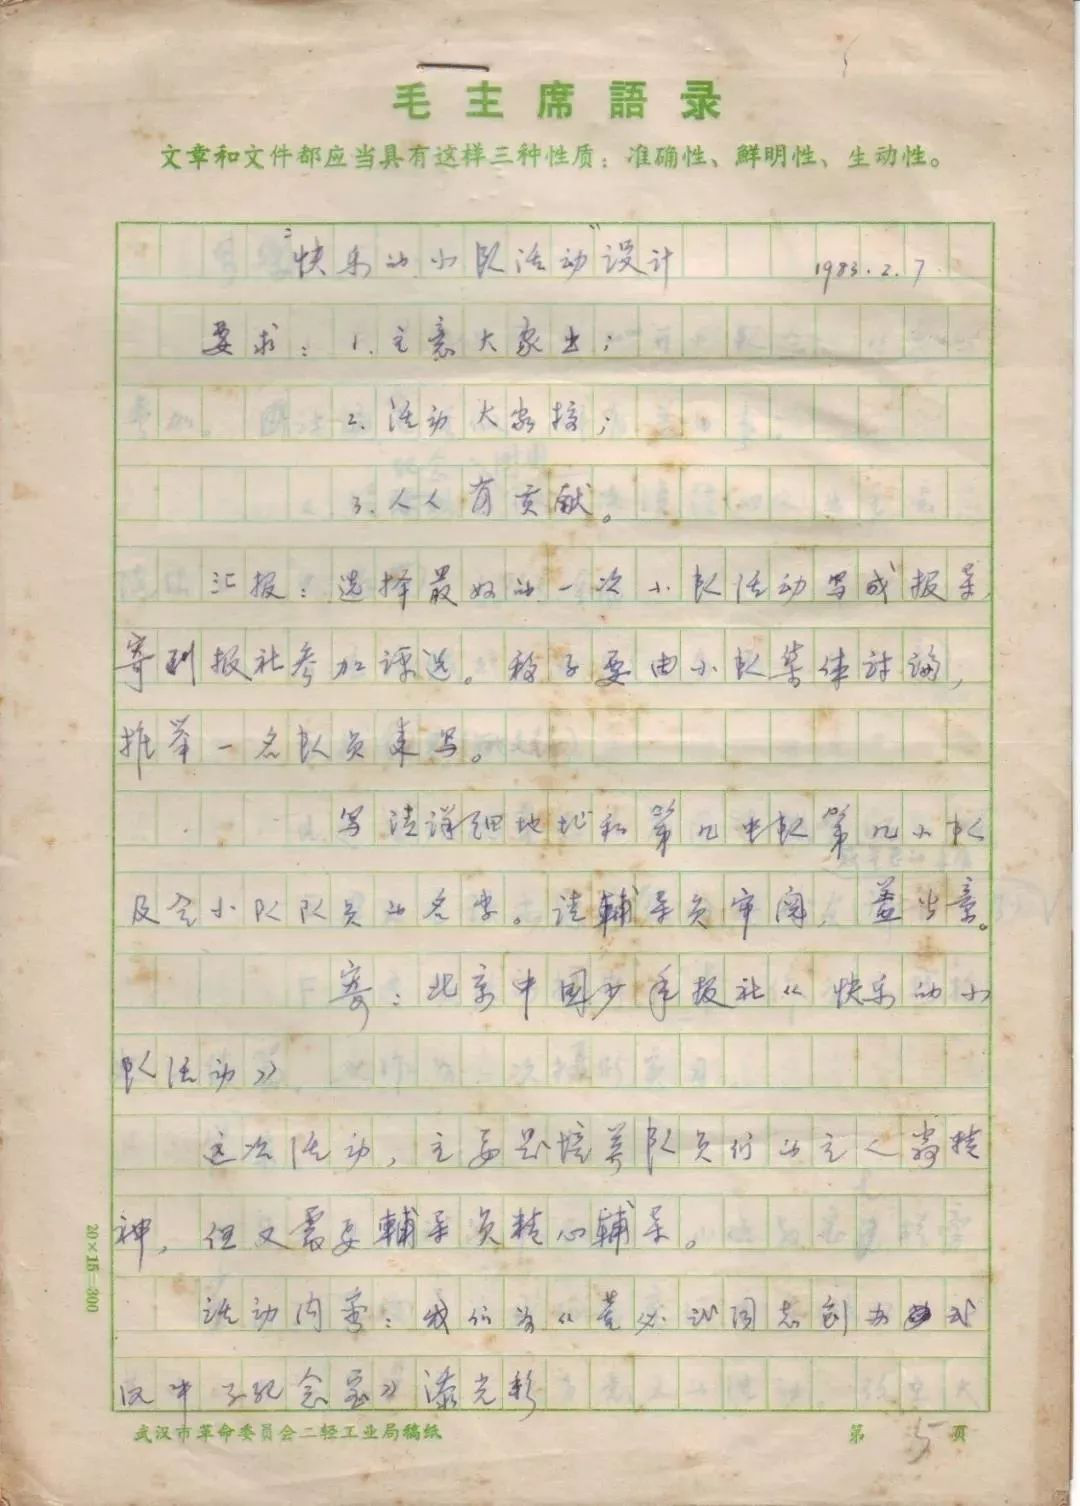 毛主席語录
文章和文件都应当具有这样三种性质：准确性、鮮明性、生动性。
“快乐的小队活动”设计 1983.2.7
要求：1.主意大家出；
2.活动大家搞；
3.人人有贡献。
汇报：选择最好的一次小队活动写成报导，
寄到报社参加评选。稿子要由小队集体讨论，
推举一名队员来写。
写清详细地址和第几中队第几小队
及全小队队员的名字。请輔导员审阅，盖公章。
寄：北京中国少年报社《快乐的小
队活动》
这次活动，主要是培养队员们的主人翁精
神，但又需要輔导员精心輔导。
活动内容：我们为《董必武同志创办武
汉中学纪念室》添光彩
20×15=300
武汉市革命委员会二轻工业局稿纸
第5页